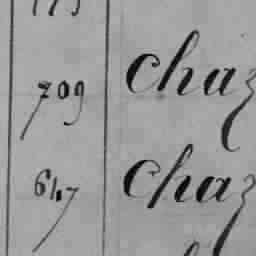 709 chaz
647 chaz